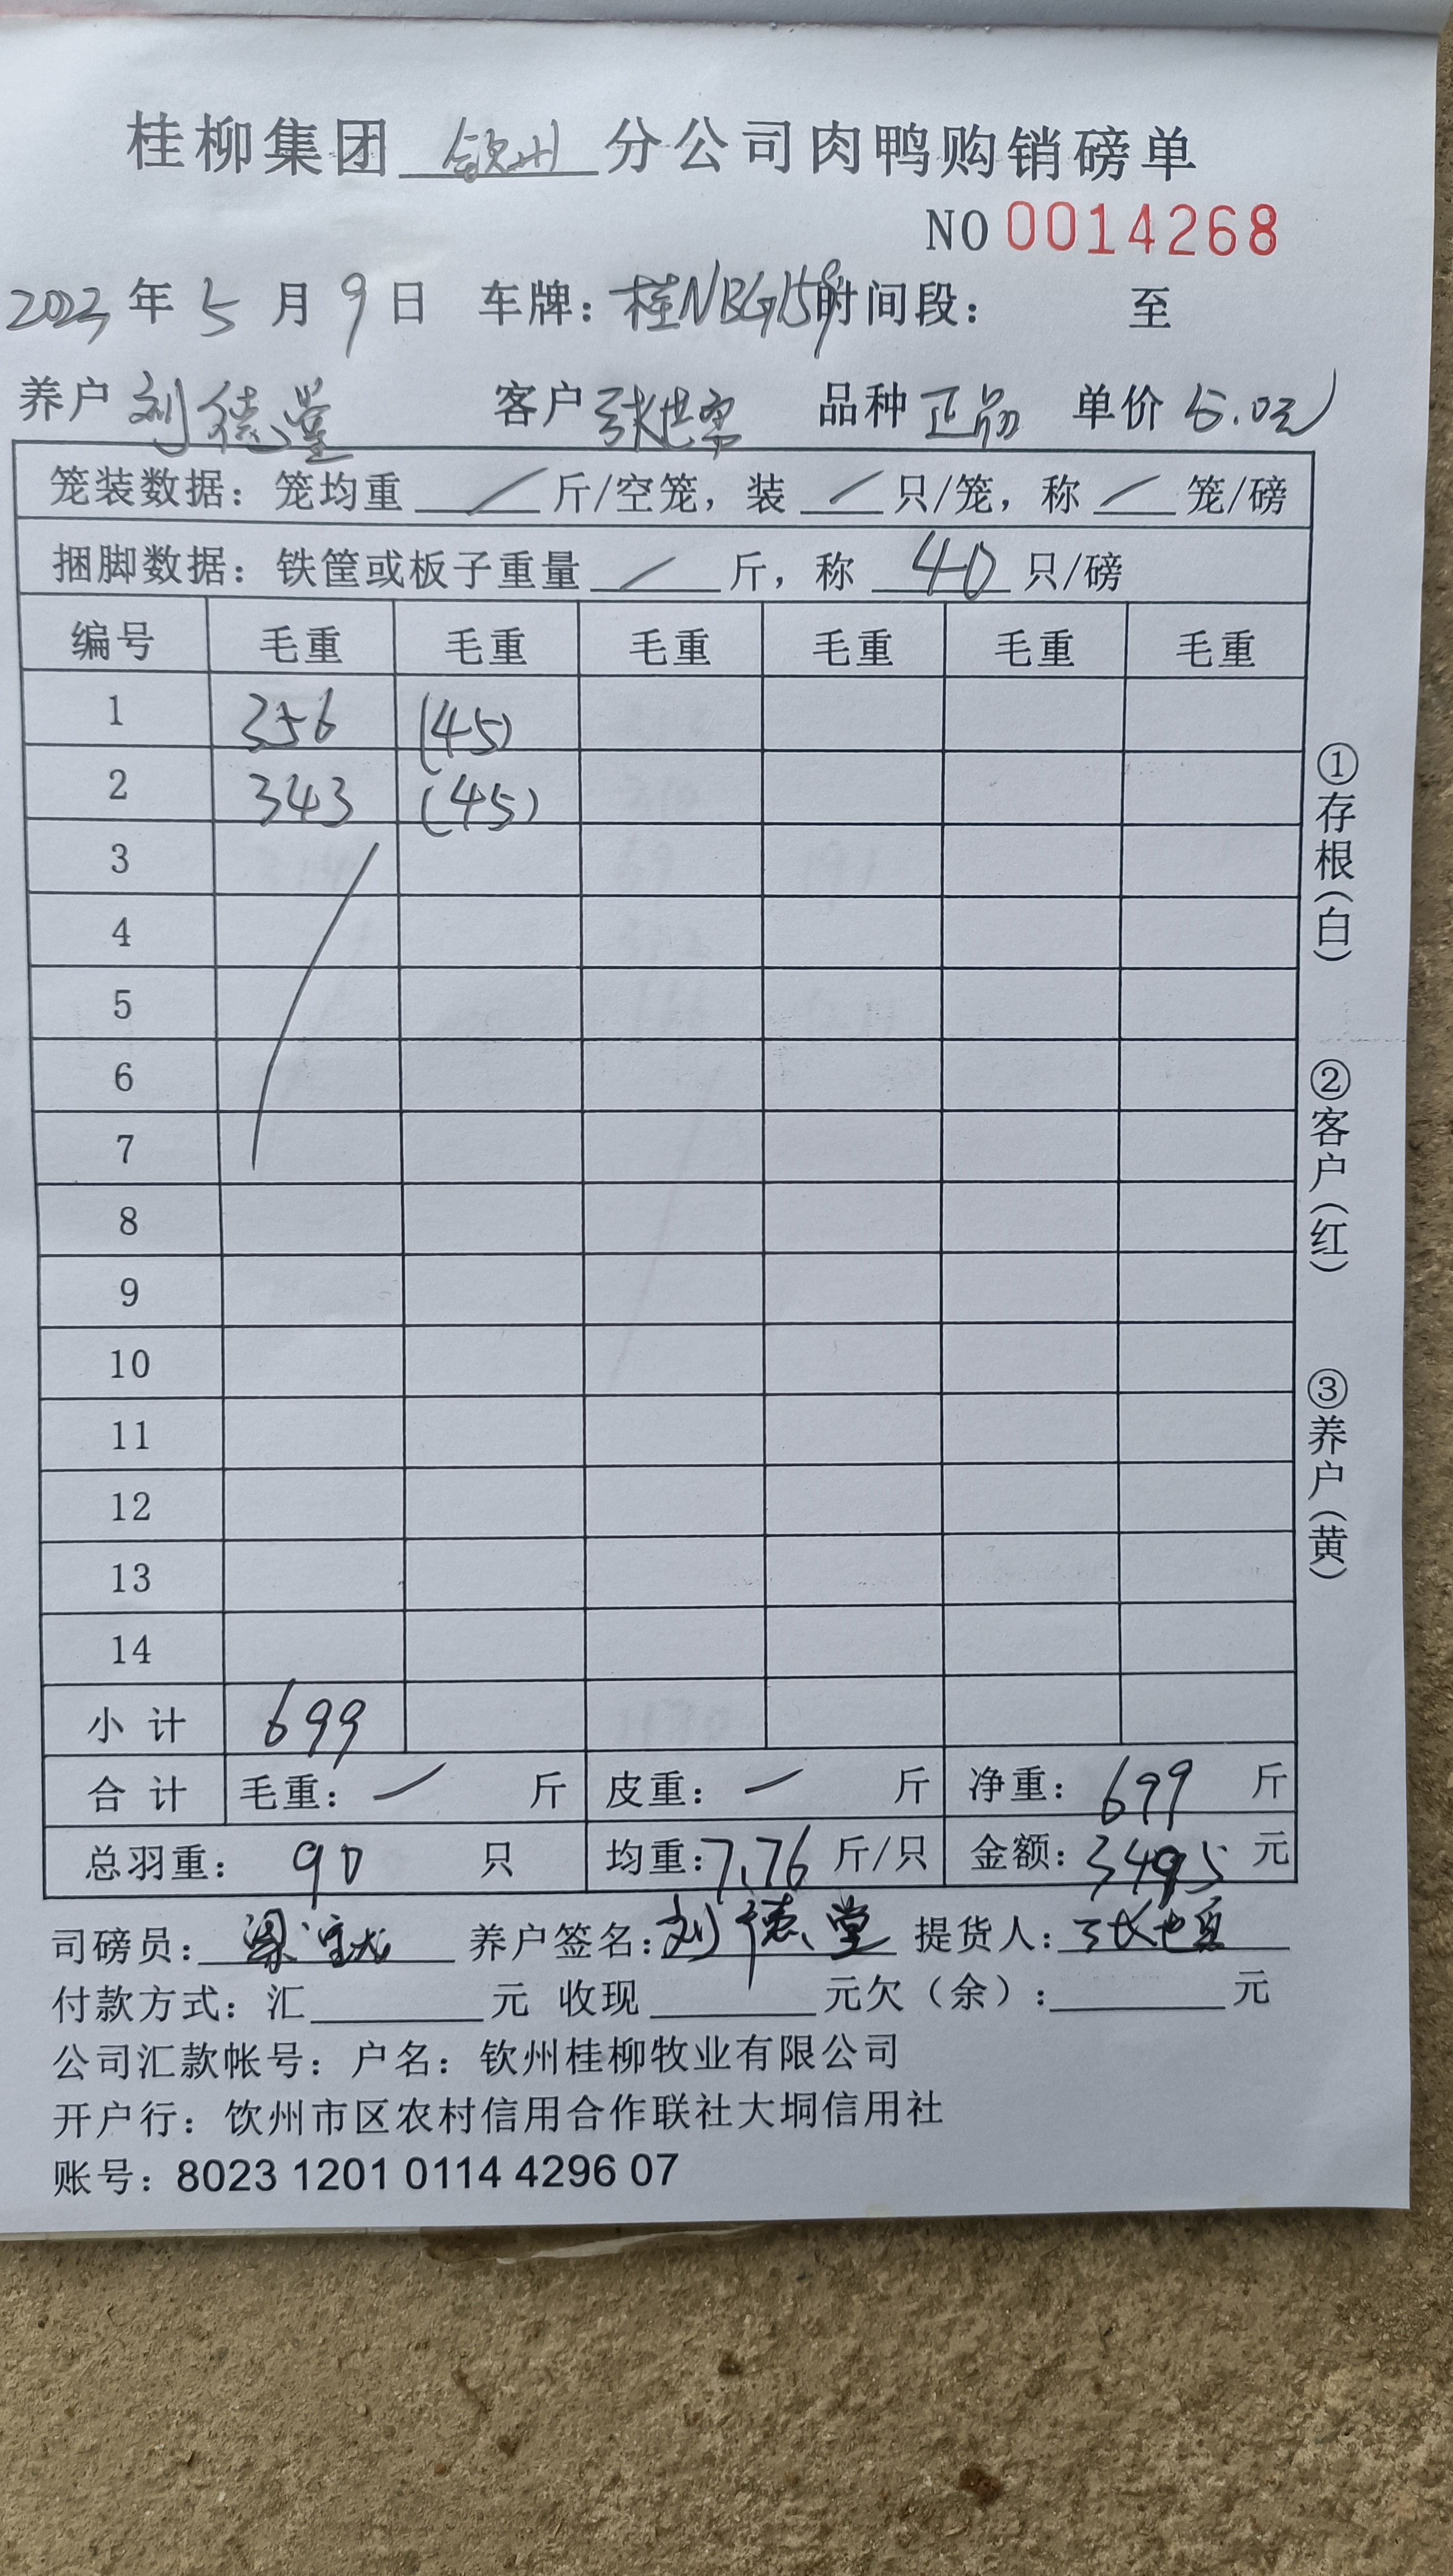 桂柳集团 钦州 分公司肉鸭购销磅单
NO 0014268
2023 年 5 月 9 日 车牌：桂NBG159 时间段： 至
养户 刘德堂 客户 张世 品种 正品 单价 5.0元
笼装数据：笼均重 / 斤/空笼，装 / 只/笼，称 / 笼/磅
捆脚数据：铁筐或板子重量 / 斤，称 40 只/磅
编号 毛重 毛重 毛重 毛重 毛重 毛重
1 356 (45)
2 343 (45)
3
4
5
6
7
8
9
10
11
12
13
14
小 计 699
合 计 毛重：/ 斤 皮重：/ 斤 净重：699 斤
总羽重： 90 只 均重：7.76 斤/只 金额：3495 元
司磅员： 养户签名：刘德堂 提货人：张世
付款方式：汇 元 收现 元欠（余）： 元
公司汇款帐号：户名：钦州桂柳牧业有限公司
开户行：饮州市区农村信用合作联社大垌信用社
账号：8023 1201 0114 4296 07
①存根（白）
②客户（红）
③养户（黄）